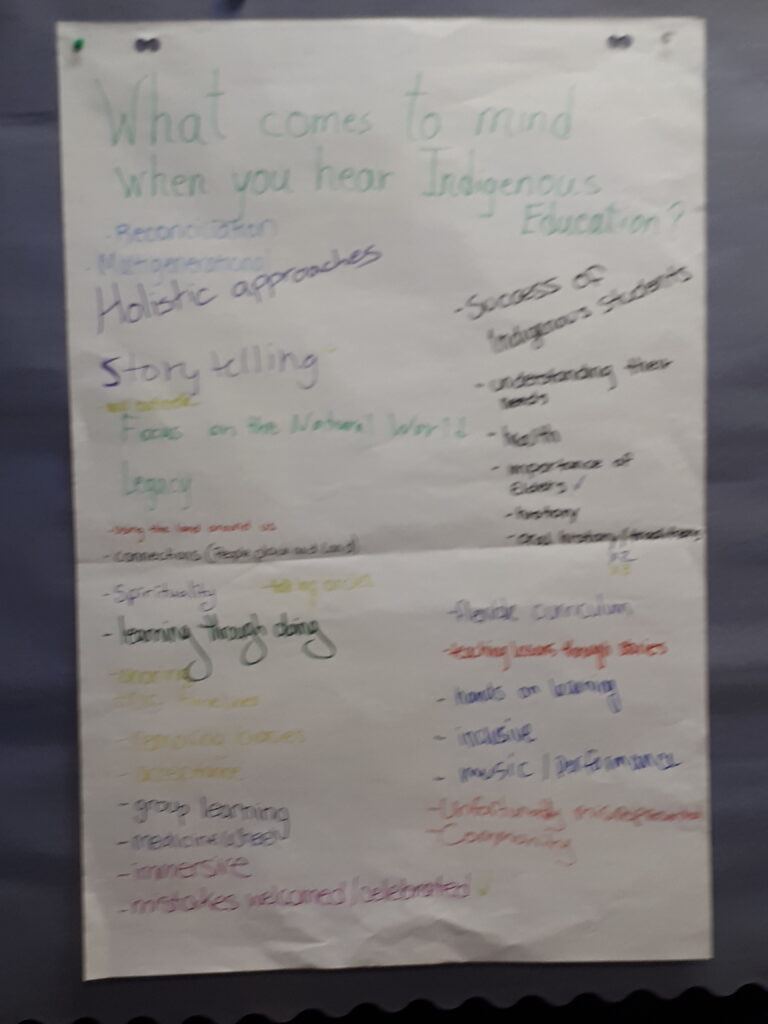 What comes to mind
when you hear Indigenous
Education?
· Reconciliation
· Multigenerational
Holistic approaches
Story telling
Focus on the Natural World
Legacy
- Using the land around us
- connections (People place and Land)
- Spirituality
- talking circles
- learning through doing
- sharing
time lines
- removing barriers
- acceptance
- group learning
- medicine wheel
- immersive
- mistakes welcomed/celebrated ✓
- Success of
Indigenous Students
- understanding their
needs
- health
- importance of
Elders ✓
- history
- oral history/traditions
x2
x3
- flexible curriculum
- teaching lessons through stories
- hands on learning
- inclusive
- music / performance
- Unfortunately misrepresented
- Community